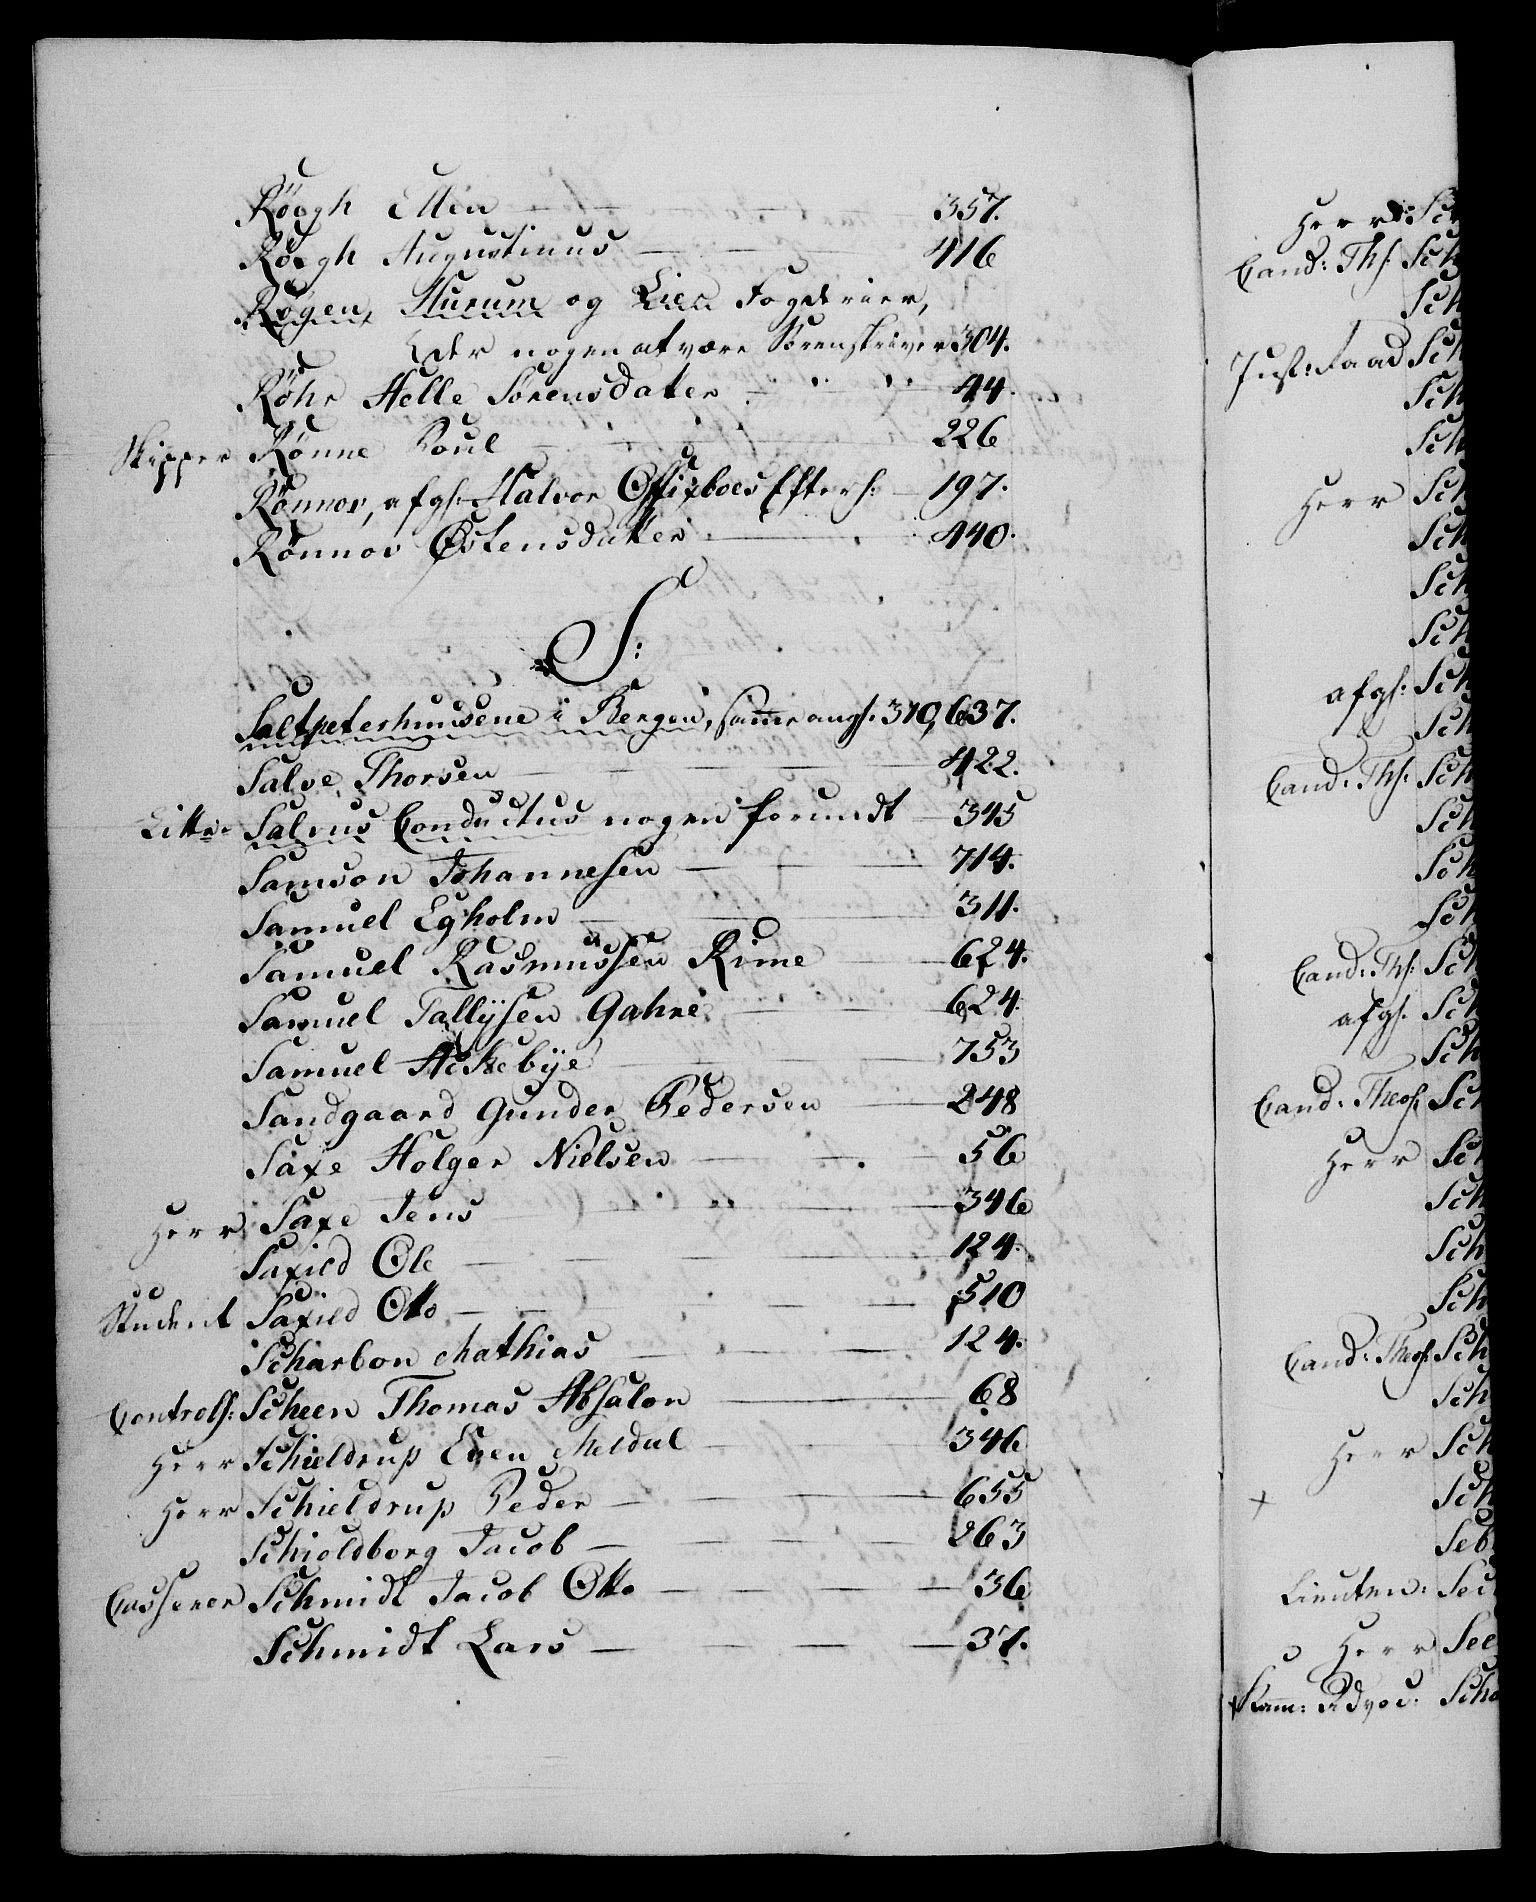 Röegh Ellen 357.
Röegh Augustinus 416
Røgen, Hurum og Lier Fogderier,
Eder nogen at være Sorenskriver 304.
Röhr Helle Sørensdater 44.
Skipper Rønne Poul 226
Rønnov, afgh: Halvor Efterh: 197.
Rönnov Østensdatter 440.
S:
Saltpeterhuusene i Bergen, samme angh. 310, 637.
Salve Thorsen 422.
Littr. Salvus Conductus nogen forundt 345
Samson Johannesen 714.
Samuel Egholm 311.
Samuel Rasmussen Rime 624.
Samuel Tallysen Gahre 624.
Samuel 753
Sandgaard Gunder Pedersen 248
Saxe Holger Nielsen 56
Herr Saxe Jens 346
Saxild Ole 124.
Student Saxild Otto 510
Scharbon Mathias 124.
Controll: Scheen Thomas Absalon 68
Herr Schieldrup Even Meldal 346
Herr Schieldrup Peder 655
Schioldborg Jacob 263
Casserer Schmidt Jacob Otto 36
Schmidt Lars 37.
Herr: Sch
Cand: Th: Sch
Sch
Just: Raad Sch
Sch
Sch
Herr Sch
Sch
Sch
Sch
afgh: Sch
Sch
Cand: Th: Sch
Sch
Sch
Sch
Cand: Th: Sch
afgh. Sch
Sch
Cand: Theol: Sch
Herr Sch
Sch
Sch
Sch
Cand: Theol: Sch
Sch
Herr Sch
Sch
Seb
Lieuten: Sec
Herr See
Kam: Advoc: Scha